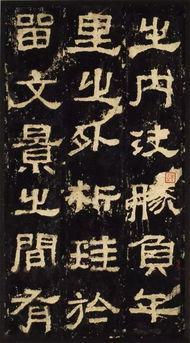 之內決勝負千
里之外析珪於
留文景之間有